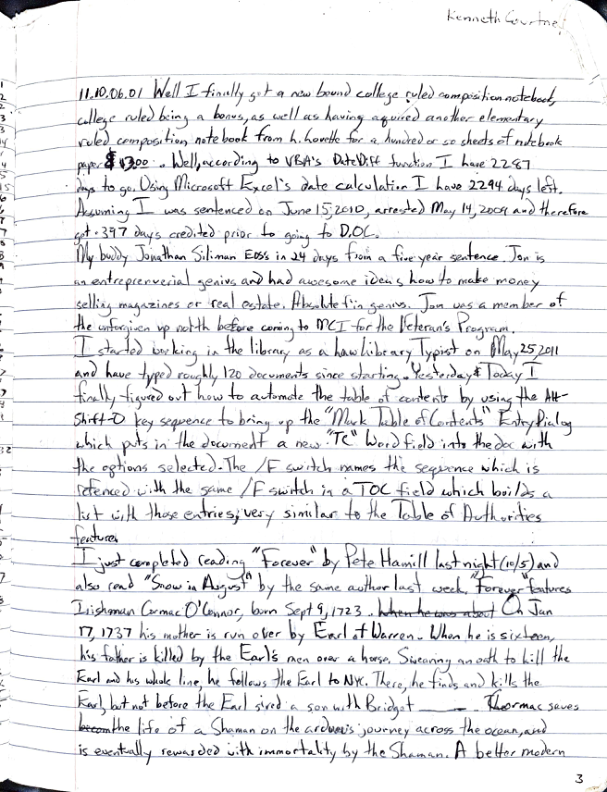 Kenneth Courtney
11.10.06.01 Well I finally got a new bound college ruled composition notebook,
college ruled being a bonus, as well as having aquired another elementary
ruled composition notebook from h. for a hundred or so sheets of notebook
paper $1300. Well, according to VBA's DateDiff function I have 2287
days to go. Using Microsoft Excel's date calculation I have 2294 days left.
Assuming I was sentenced on June 15, 2010, arrested May 14, 2009 and therefore
got 397 days credited prior to going to D.O.C.
My buddy Jonathan Siliman EOSs in 24 days from a five year sentence. Jon is
an entreprenverial genius and had awesome ideas how to make money
selling magazines or real estate. Absolute f'in genius. Jon was a member of
the unforgiven up north before coming to MCI for the Veteran's Program.
I started working in the library as a Law Library Typist on May 25, 2011
and have typed roughly 120 documents since starting. Yesterday & Today I
finally figured out how to automate the table of contents by using the Alt-
Shift-O key sequence to bring up the "Mark Table of Contents" Entry Dialog
which puts in the document a new "TC" Word field into the doc with
the options selected. The /F switch names the sequence which is
refenced with the same /F switch in a TOC field which builds a
list with those entries; very similar to the Table of Authorities
features
I just completed reading "Forever" by Pete Hamill last night (10/5) and
also read "Snow in August" by the same author last week. "Forever" features
Irishman Cormac O'Connor, born Sept 9, 1723. When he was about On Jan
17, 1737 his mother is run over by Earl of Warren. When he is sixteen,
his father is killed by the Earl's men over a horse. Swearing an oath to kill the
Earl and his whole line, he follows the Earl to NY. There, he finds and kills the
Earl, but not before the Earl sired a son with Bridget ______. Cormac saves
the life of a Shaman on the journey across the ocean, and
is eventually rewarded with immortality by the Shaman. A better modern
3